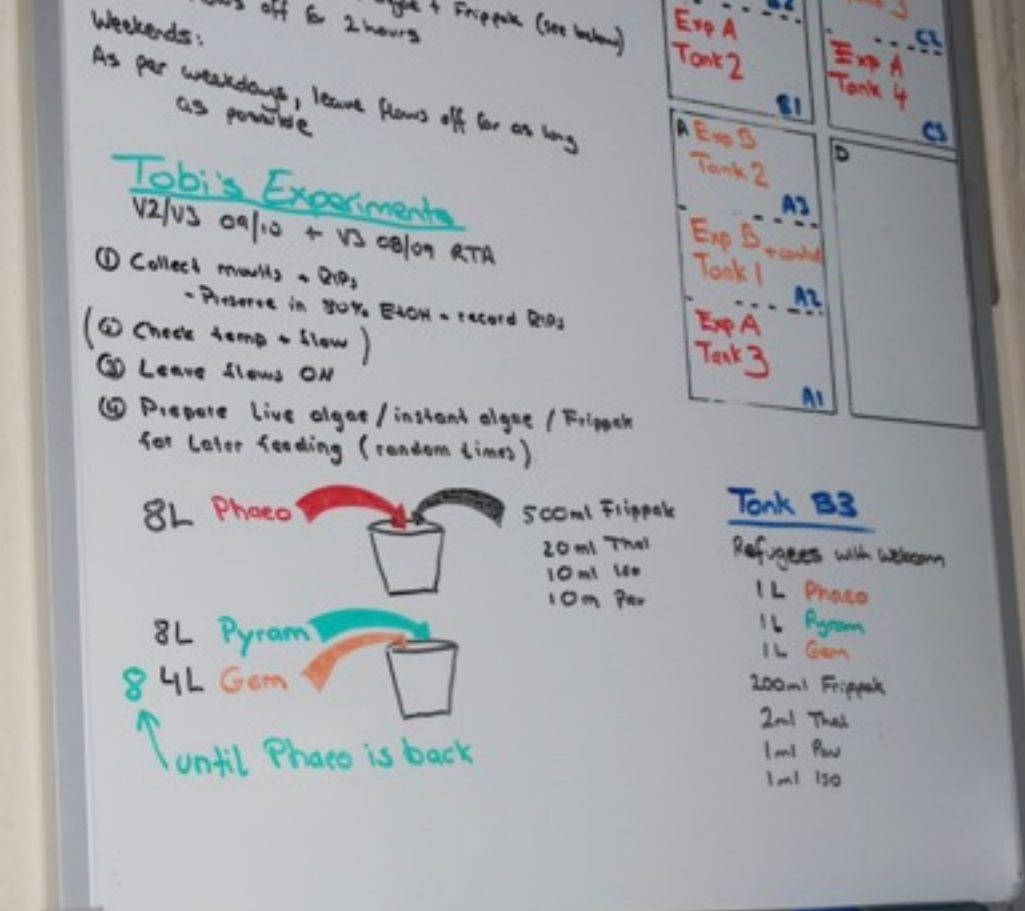 + Frippak (see below)
off for 2 hours
Weekends:
As per weekdays, leave flows off for as long
as possible
Tobi's Experiments
V2/V3 09/10 + V3 08/09 RTA
① Collect moults + RIPs
- Preserve in 80% EtOH + record RIPs
(② Check temp + flow)
③ Leave flows ON
④ Prepare Live algae / instant algae / Frippak
for later feeding (random times)
8L Phaeo
500ml Frippak
20ml Thal
10ml Iso
10m Pav
8L Pyram
8 4L Gem
until Phaeo is back
B2
Exp A
Tank 2
B1
C2
Exp A
Tank 4
C3
A Exp B
Tank 2
A3
Exp B + control
Tank 1
A2
Exp A
Tank 3
A1
D
Tank B3
Refugees with
1L Phaeo
1L Pyram
1L Gem
200ml Frippak
2ml Thal
1ml Pav
1ml Iso